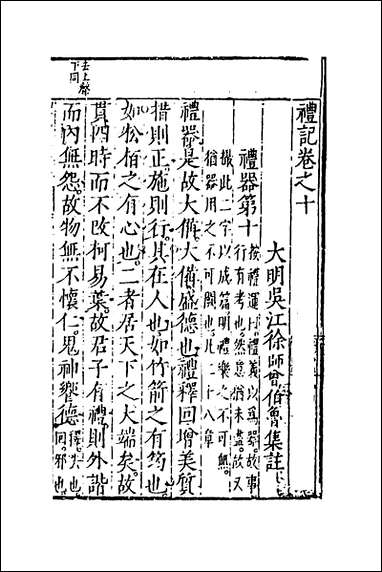 禮記卷之十
大明吳江徐師曾伯魯集註
禮器第十
按禮運禮義以爲器故事
行有考也然意猶未盡故又
撮此二字以成篇明禮樂之不可無
猶器用之不可闕也凡二十八章
禮器是故大備大備盛德也禮釋回增美質
措則正施則行其在人也如竹箭之有筠也
如松柏之有心也二者居天下之大端矣故
貫四時而不改柯易葉故君子有禮則外諧
而內無怨故物無不懷仁鬼神饗德
釋也
回邪也
下同